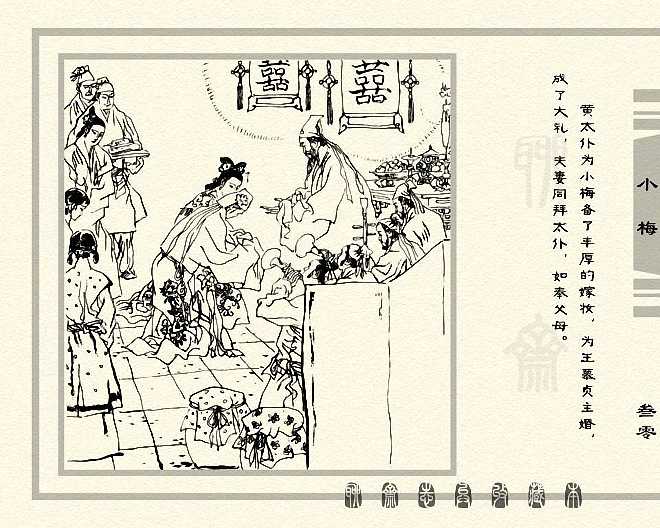 黄太仆为小梅备了丰厚的嫁妆，为王慕贞主婚，
成了大礼。夫妻同拜太仆，如奉父母。
小梅
叁零
囍
囍
聊斋志异收藏本